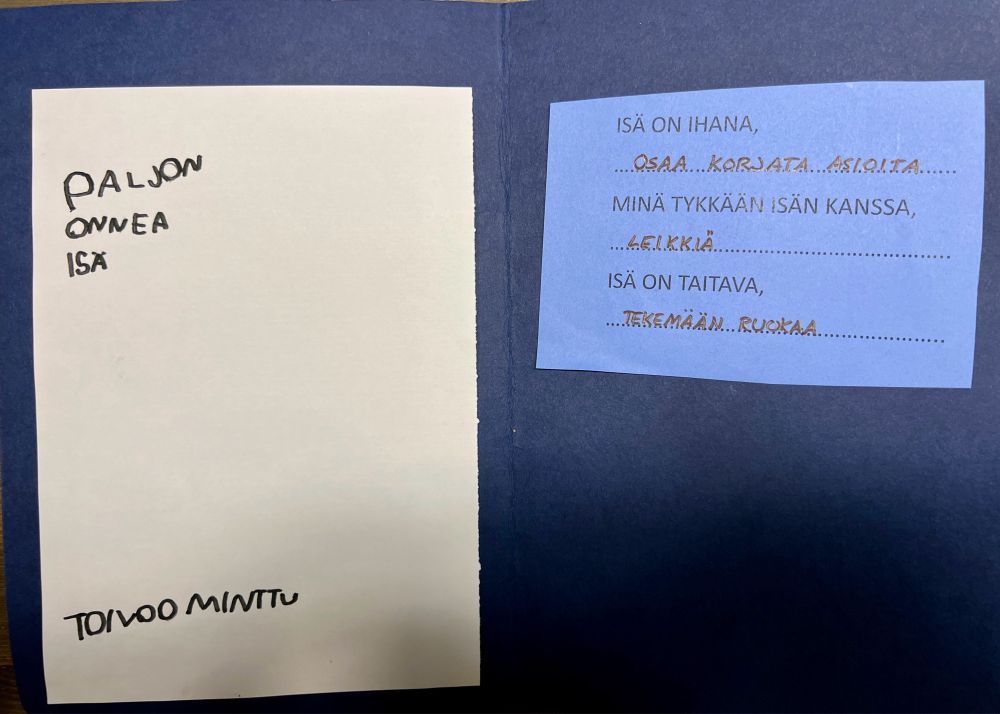 PALJON
ONNEA
ISÄ
TOIVOO MINTTU
ISÄ ON IHANA,
OSAA KORJATA ASIOITA
MINÄ TYKKÄÄN ISÄN KANSSA,
LEIKKIÄ
ISÄ ON TAITAVA,
TEKEMÄÄN RUOKAA